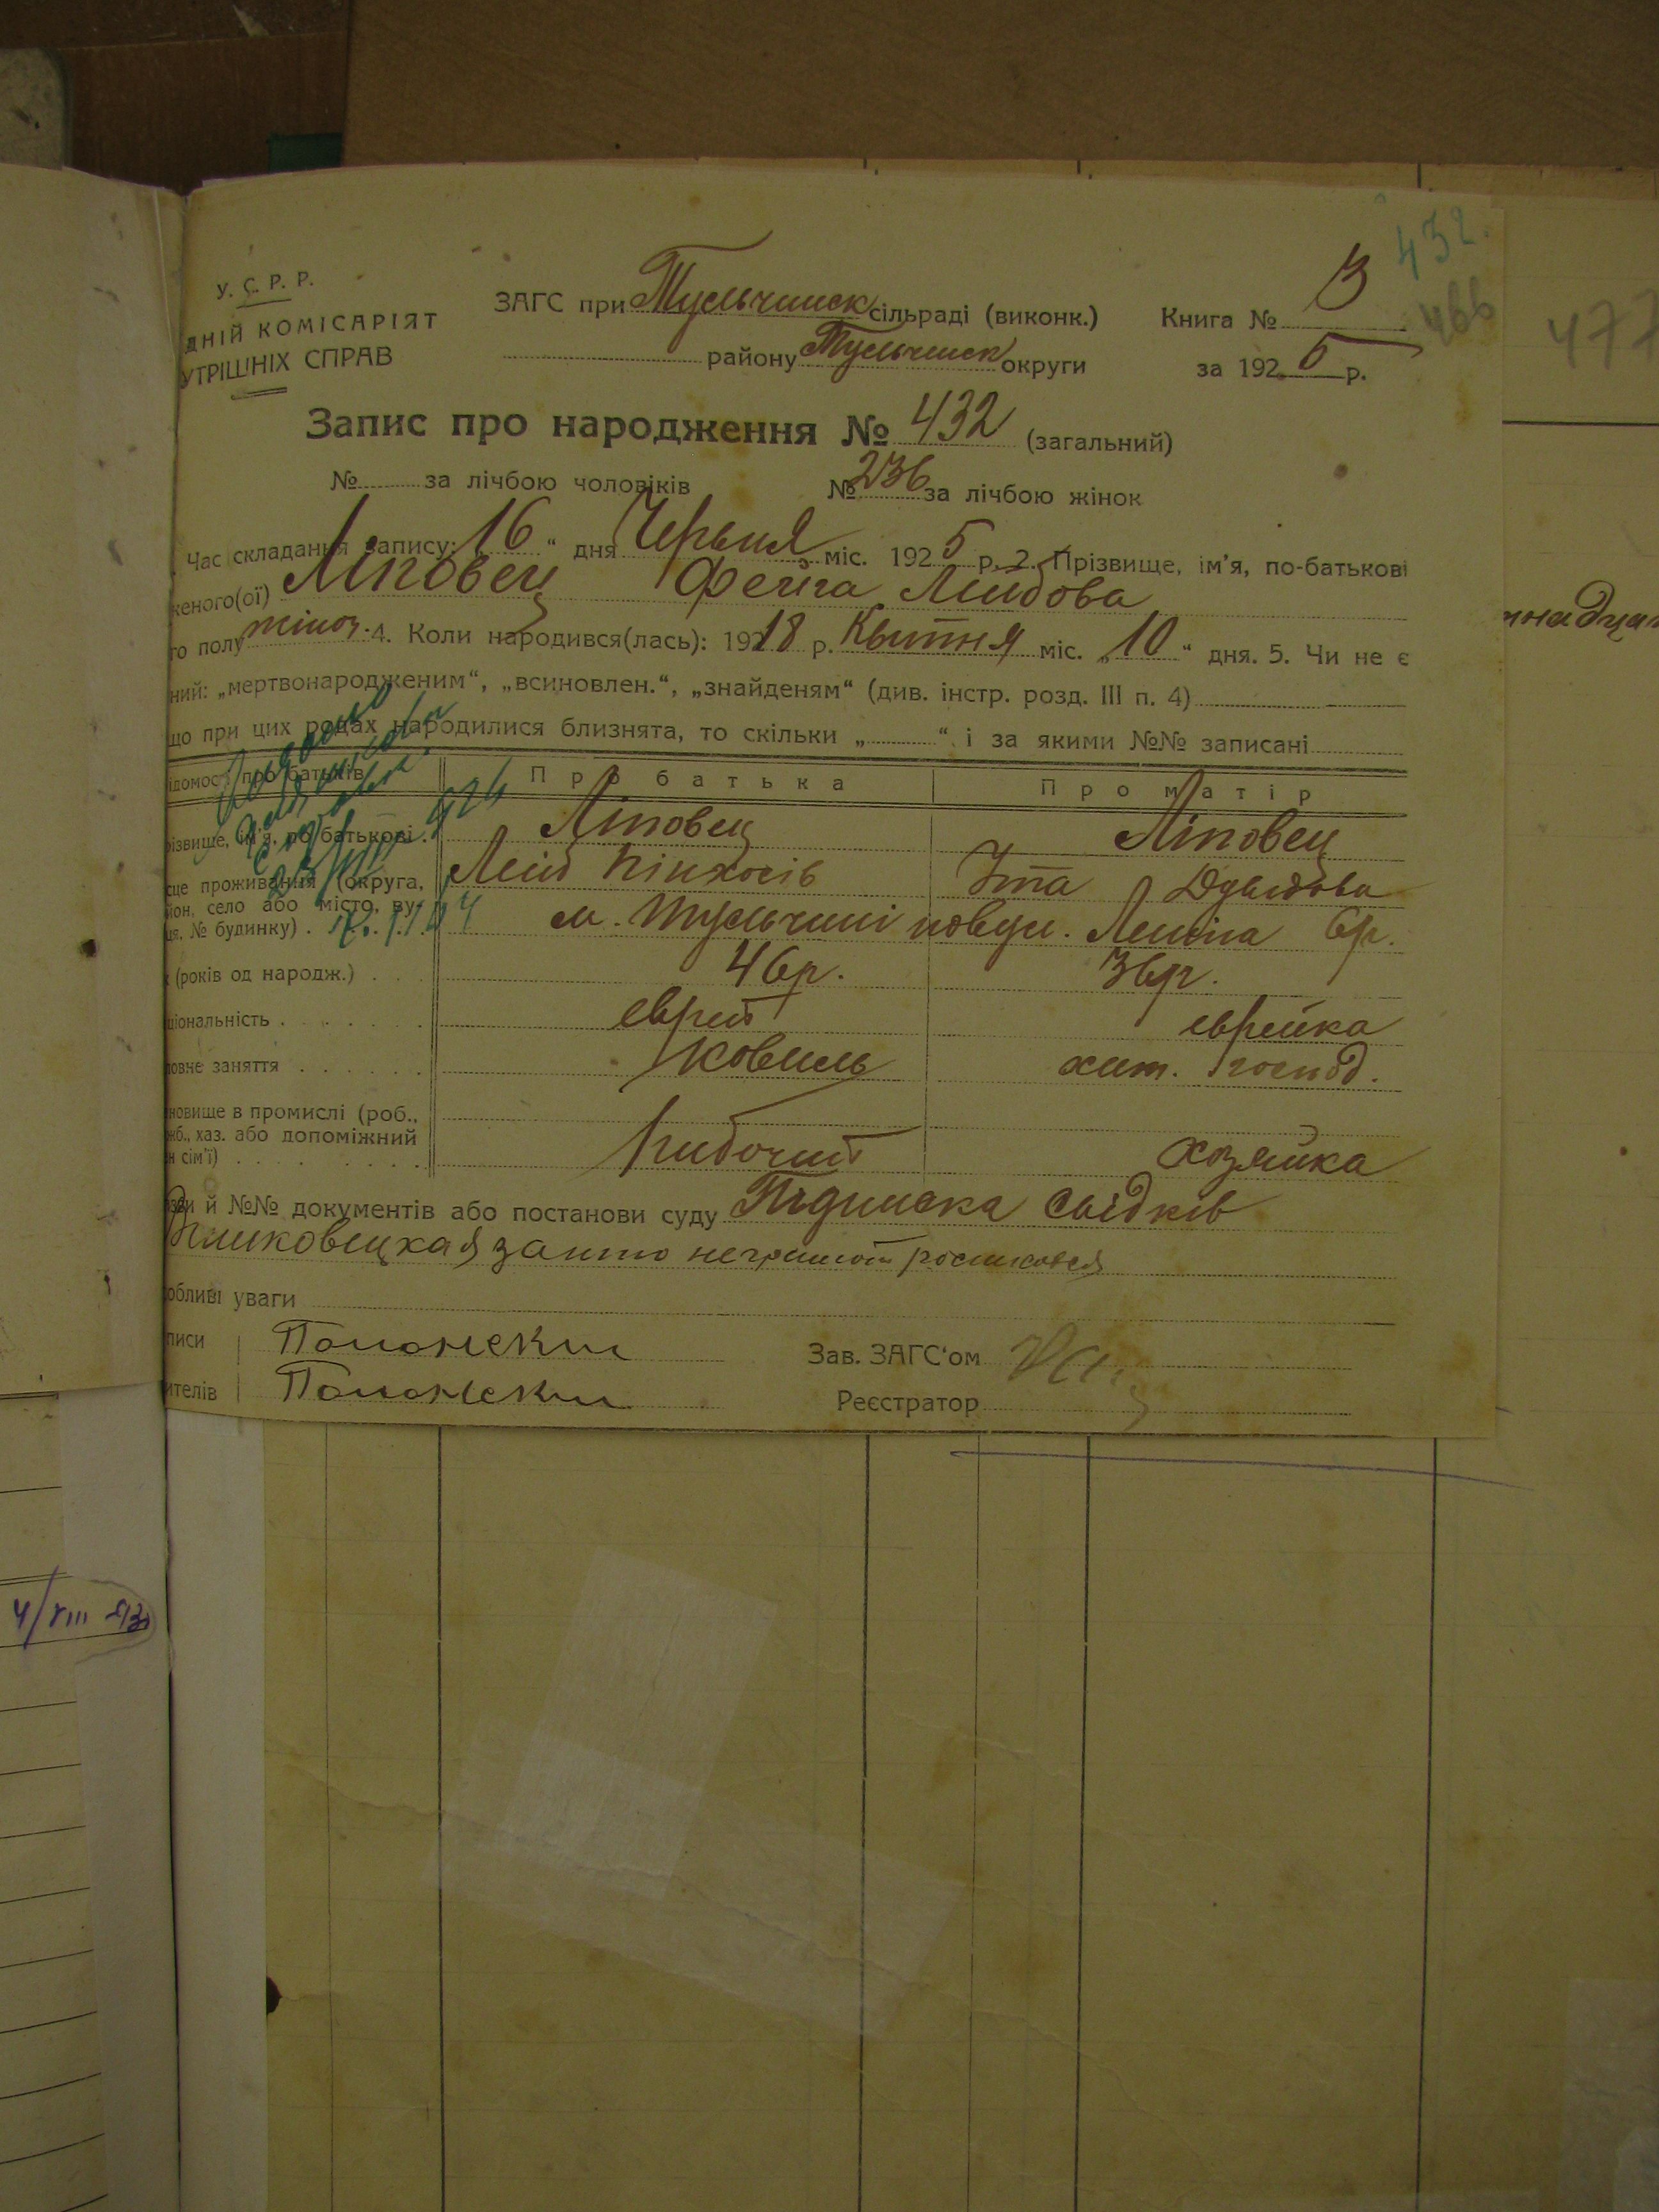 432.
466
477
У. С. Р. Р.
ДНІЙ КОМІСАРІЯТ
УТРІШНІХ СПРАВ
ЗАГС при Тульчинск сільраді (виконк.)
району Тульчинск округи
Книга № 3
за 1925 р.
Запис про народження № 432 (загальний)
№ за лічбою чоловіків № 236 за лічбою жінок
Час складання запису: 16 " дня Червня міс. 1925 р. 2. Прізвище, ім'я, по-батькові
женого(ої) Ліповец Фейга Лейбова
го полу жіноч. 4. Коли народився(лась): 1918 р. Квитня міс. „10" дня. 5. Чи не є
ний: „мертвонародженим", „всиновлен.", „знайденям" (див. інстр. розд. III п. 4)
що при цих родах народилися близнята, то скільки „ " і за якими №№ записані
ідомості про батьків Про батька Про матір
різвище, ім'я, по батькові Ліповец Ліповец
Лейб Пінхосів Ита Дувидова
сце проживання (округа,
йон, село або місто, ву-
ця, № будинку) м. Тульчині по вул. Леніна
(років од народж.) 46р. 36р.
ціональність еврей еврейка
ловне заняття коваль хат. господ.
новище в промислі (роб.,
жб., хаз. або допоміжний
н сім'ї) рабочий хозяйка
зви й №№ документів або постанови суду Підписка свідків
за
обливі уваги
писи
ителів
Зав. ЗАГС'ом
Реєстратор
4/VIII